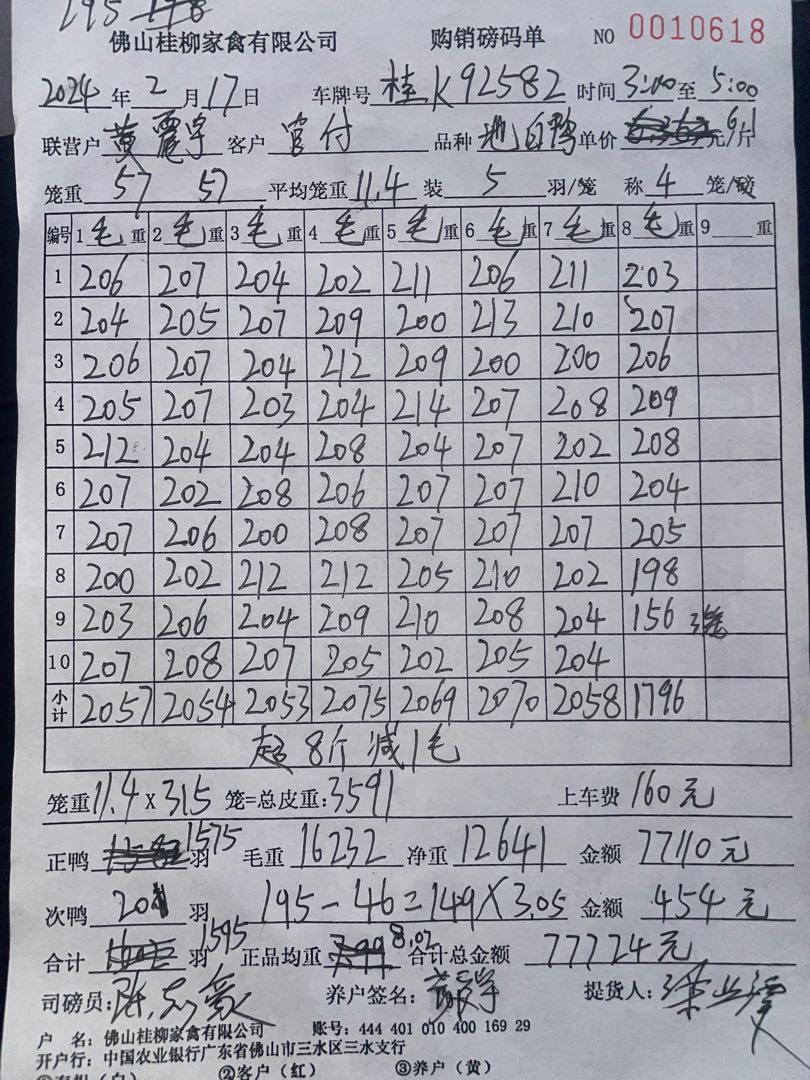 195
佛山桂柳家禽有限公司 购销磅码单 NO 0010618
2024年2月17日 车牌号 桂K92582 时间3:00至5:00
联营户 黄丽宇 客户 官付 品种 地白鸭 单价 6.1元/斤
笼重 57 57 平均笼重 11.4 装 5 羽/笼 称 4 笼/磅
编号 1毛重 2毛重 3毛重 4毛重 5毛重 6毛重 7毛重 8毛重 9 重
1 206 207 204 202 211 206 211 203
2 204 205 207 209 200 213 210 207
3 206 207 204 212 209 200 200 206
4 205 207 203 204 214 207 208 209
5 212 204 204 208 204 207 202 208
6 207 202 208 206 207 207 210 204
7 207 206 200 208 207 207 207 205
8 200 202 212 212 205 210 202 198
9 203 206 204 209 210 208 204 156 3笼
10 207 208 207 205 202 205 204
小计 2057 2054 2053 2075 2069 2070 2058 1796
超8斤减1毛
笼重11.4×315 笼=总皮重:3591 上车费 160元
正鸭 1575羽 毛重 16232 净重 12641 金额 77110元
次鸭 20羽 195-46=149×3.05 金额 454元
合计 1595羽 正品均重 8.02 合计总金额 77724元
司磅员: 养户签名: 提货人:
户 名: 佛山桂柳家禽有限公司 账号: 444 401 010 400 169 29
开户行: 中国农业银行广东省佛山市三水区三水支行
②客户(红) ③养户(黄)